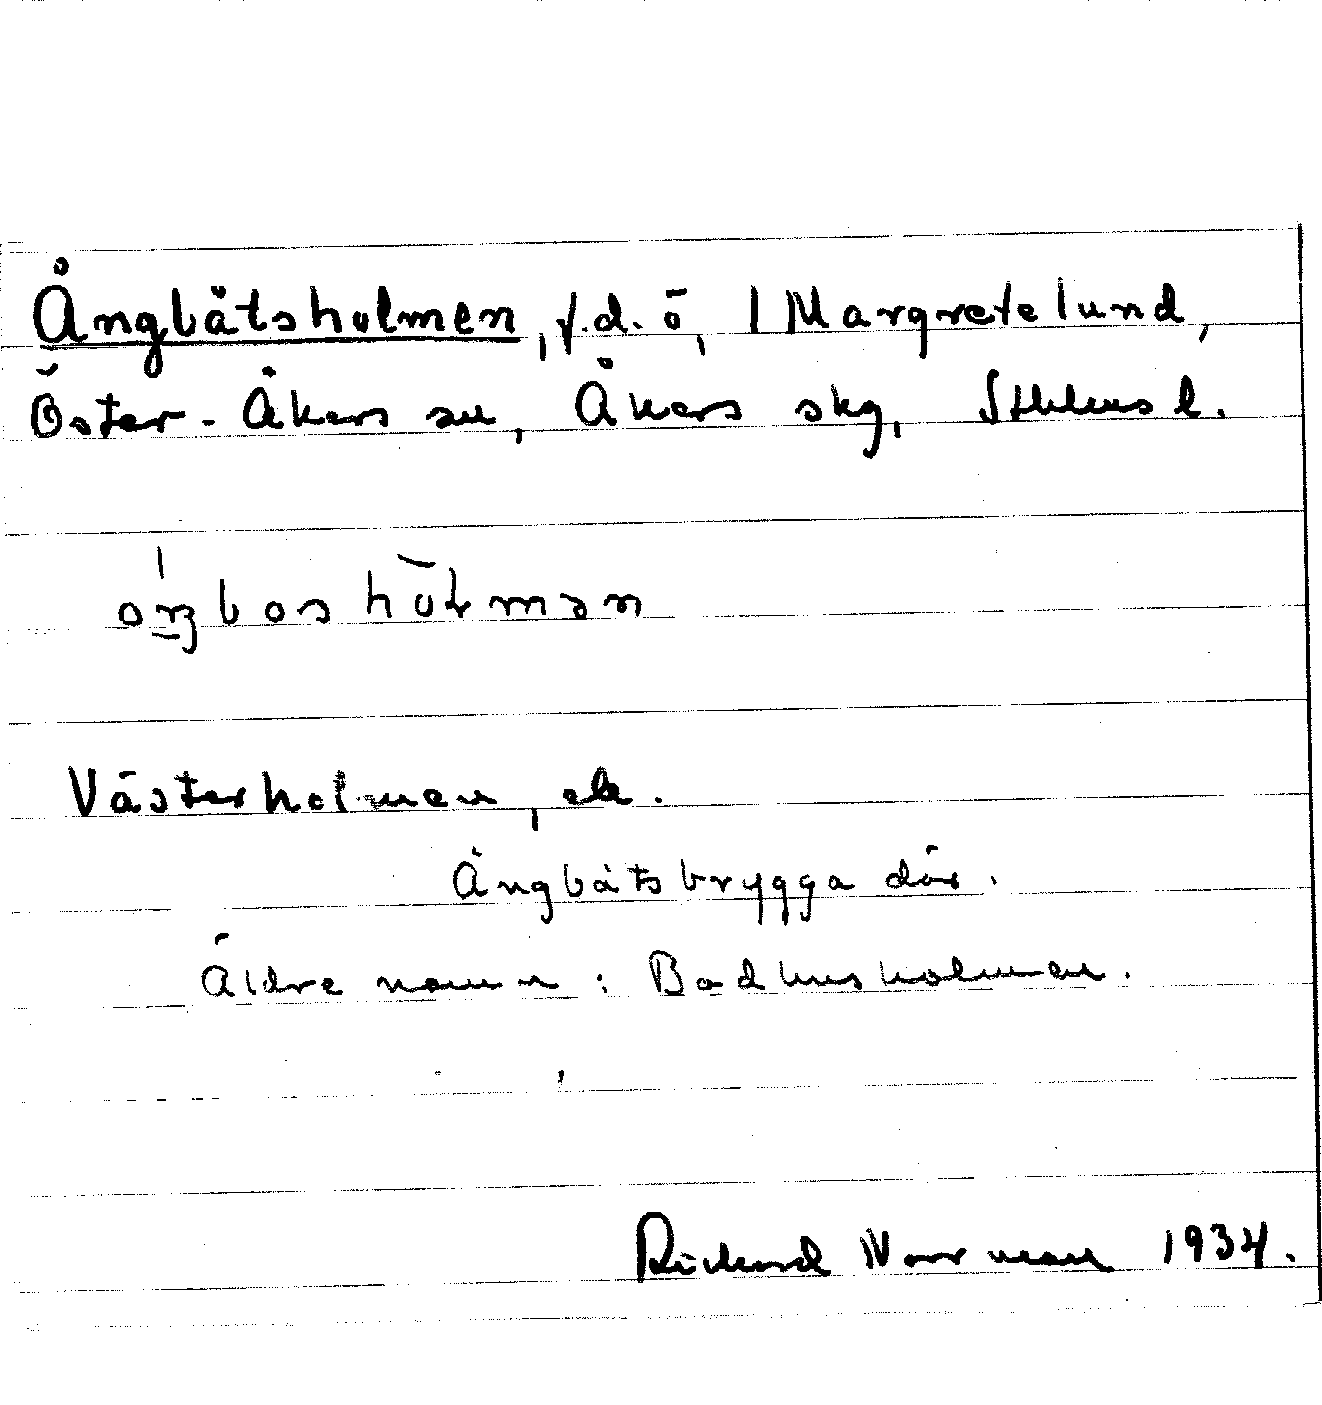 Ångbåtsholmen, f.d. ö, 1 Margretelund,
Öster-Åkers sn, Åkers skg, Sthlms l.
Västerholmen, ek.
Ångbåtsbrygga där.
Äldre namn: Badhusholmen.
Rickard Norrman 1934.